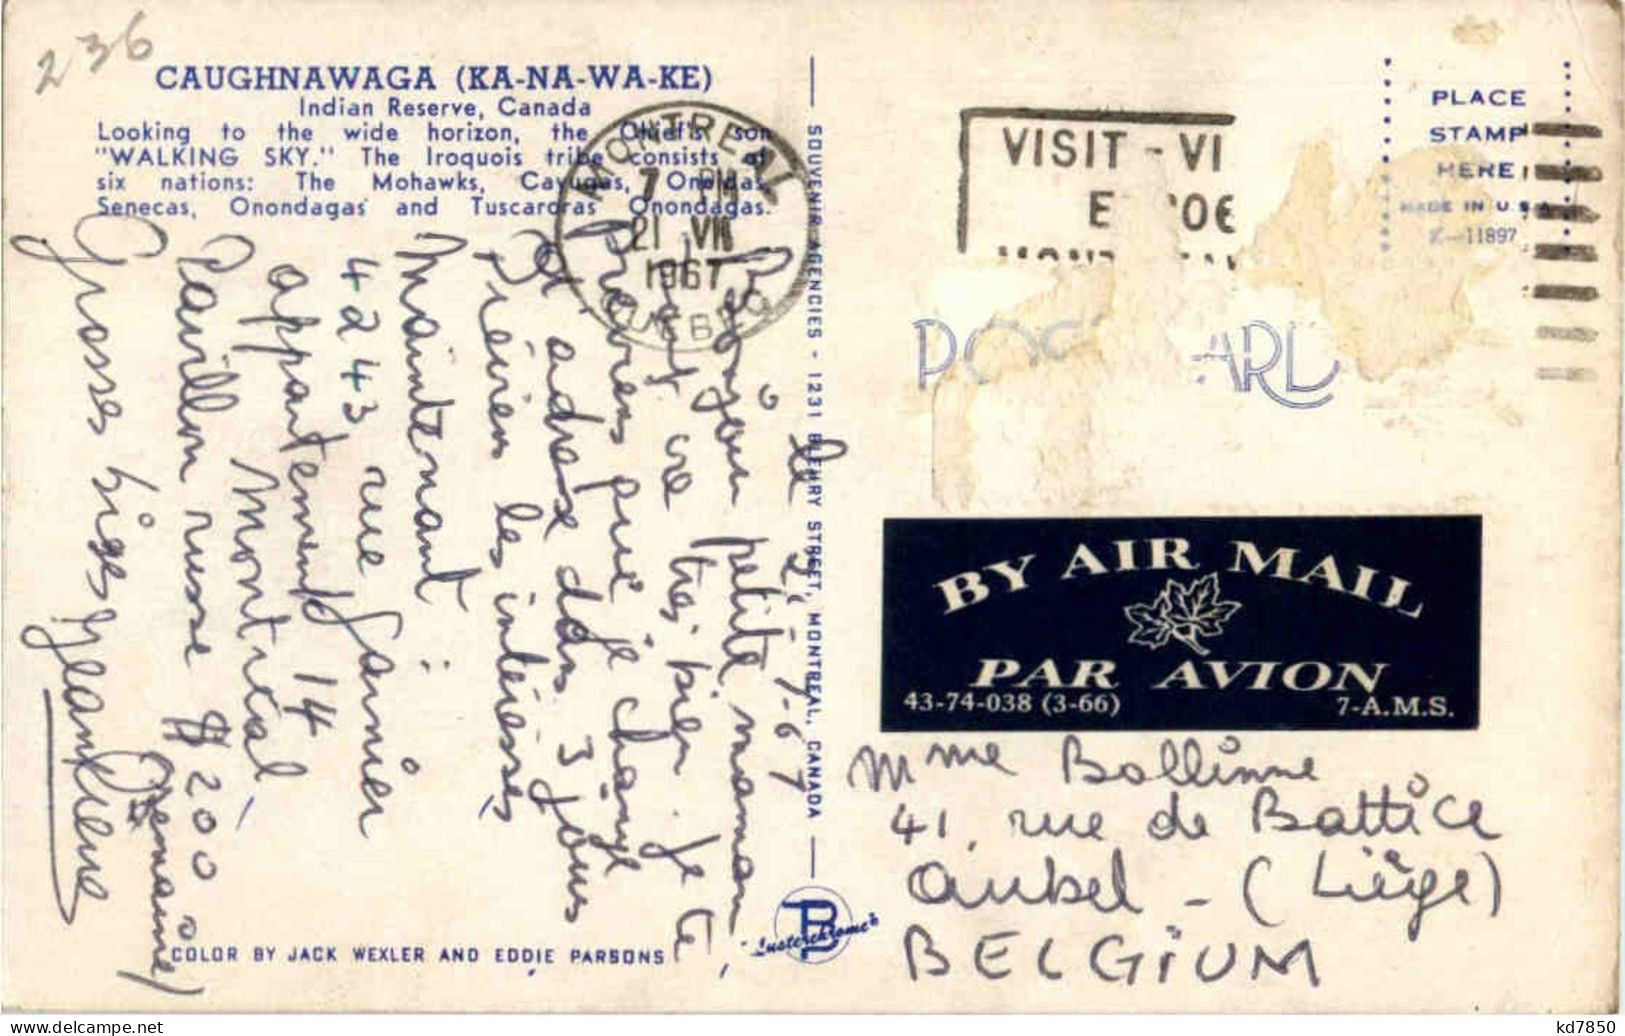 236
CAUGHNAWAGA (KA-NA-WA-KE)
Indian Reserve, Canada
Looking to the wide horizon, the Chief's son
"WALKING SKY." The Iroquois tribe consists of
six nations: The Mohawks, Cayugas, Oneidas,
Senecas, Onondagas and Tuscaroras Onondagas.
MONTREAL
7 PM
21 VII
1967
QUEBEC
le 21-7-67
Bonjour petite maman
tout va très bien. Je te
préviens que je change
d'adresse dans 3 jours
Préviens les intéressés
maintenant :
4243 rue Garnier
appartement 14
Montréal
Pavillon russe $ 200
(semaine)
Grosses bises
SOUVENIR AGENCIES - 1231 BLEURY STREET, MONTREAL, CANADA
COLOR BY JACK WEXLER AND EDDIE PARSONS
"Lusterchrome"
VISIT - VI
PLACE
STAMP
HERE
MADE IN U.S.A.
K-11897
POS ARD
BY AIR MAIL
PAR AVION
43-74-038 (3-66)
7-A.M.S.
Mme Bollinne
41, rue de Battice
Aubel - (Liège)
BELGIUM
https://www.delcampe.net
kd7850